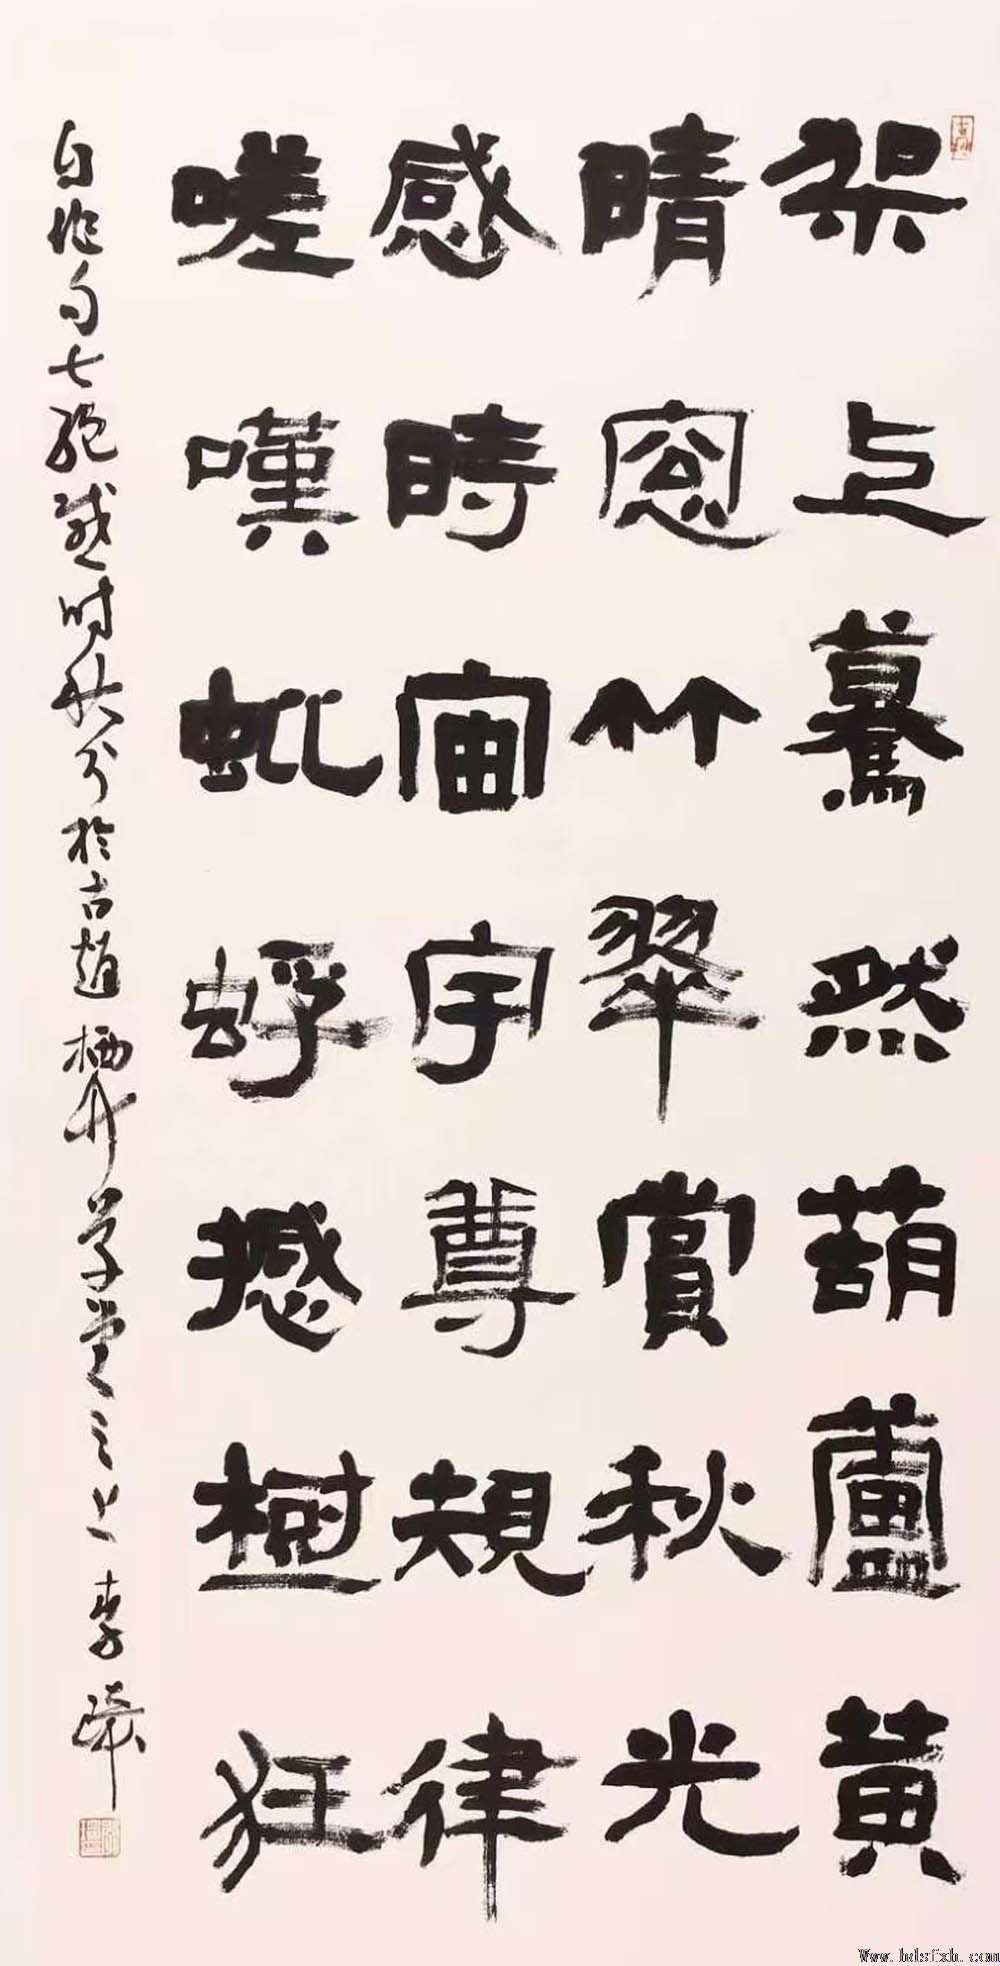 架上驀然葫蘆黃
晴窓竹翠賞秋光
感時宙宇尊規律
嗟嘆蚍蜉撼樹狂
自作句七绝感时秋分於古趙栖竹草堂之上李
Www.hdsfxh.com